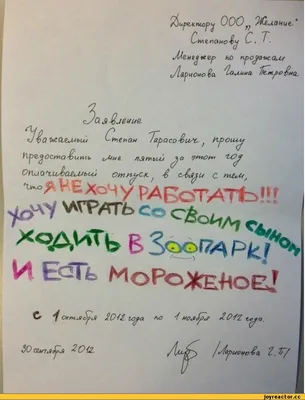 Директору ООО „Желание"
Степанову С. Т.
Менеджер по продажам
Ларионова Галина Петровна
Заявление
Уважаемый Степан Тарасович, прошу
предоставить мне пятый за этот год
оплачиваемый отпуск, в связи с тем,
что Я НЕ ХОЧУ РАБОТАТЬ!!!
ХОЧУ ИГРАТЬ СО СВОИМ СЫНОМ
ХОДИТЬ В ЗООПАРК!
И ЕСТЬ МОРОЖЕНОЕ!
С 1 октября 2012 года по 1 ноября 2012 года.
30 сентября 2012 /Ларионова Г.П/
joyreactor.cc